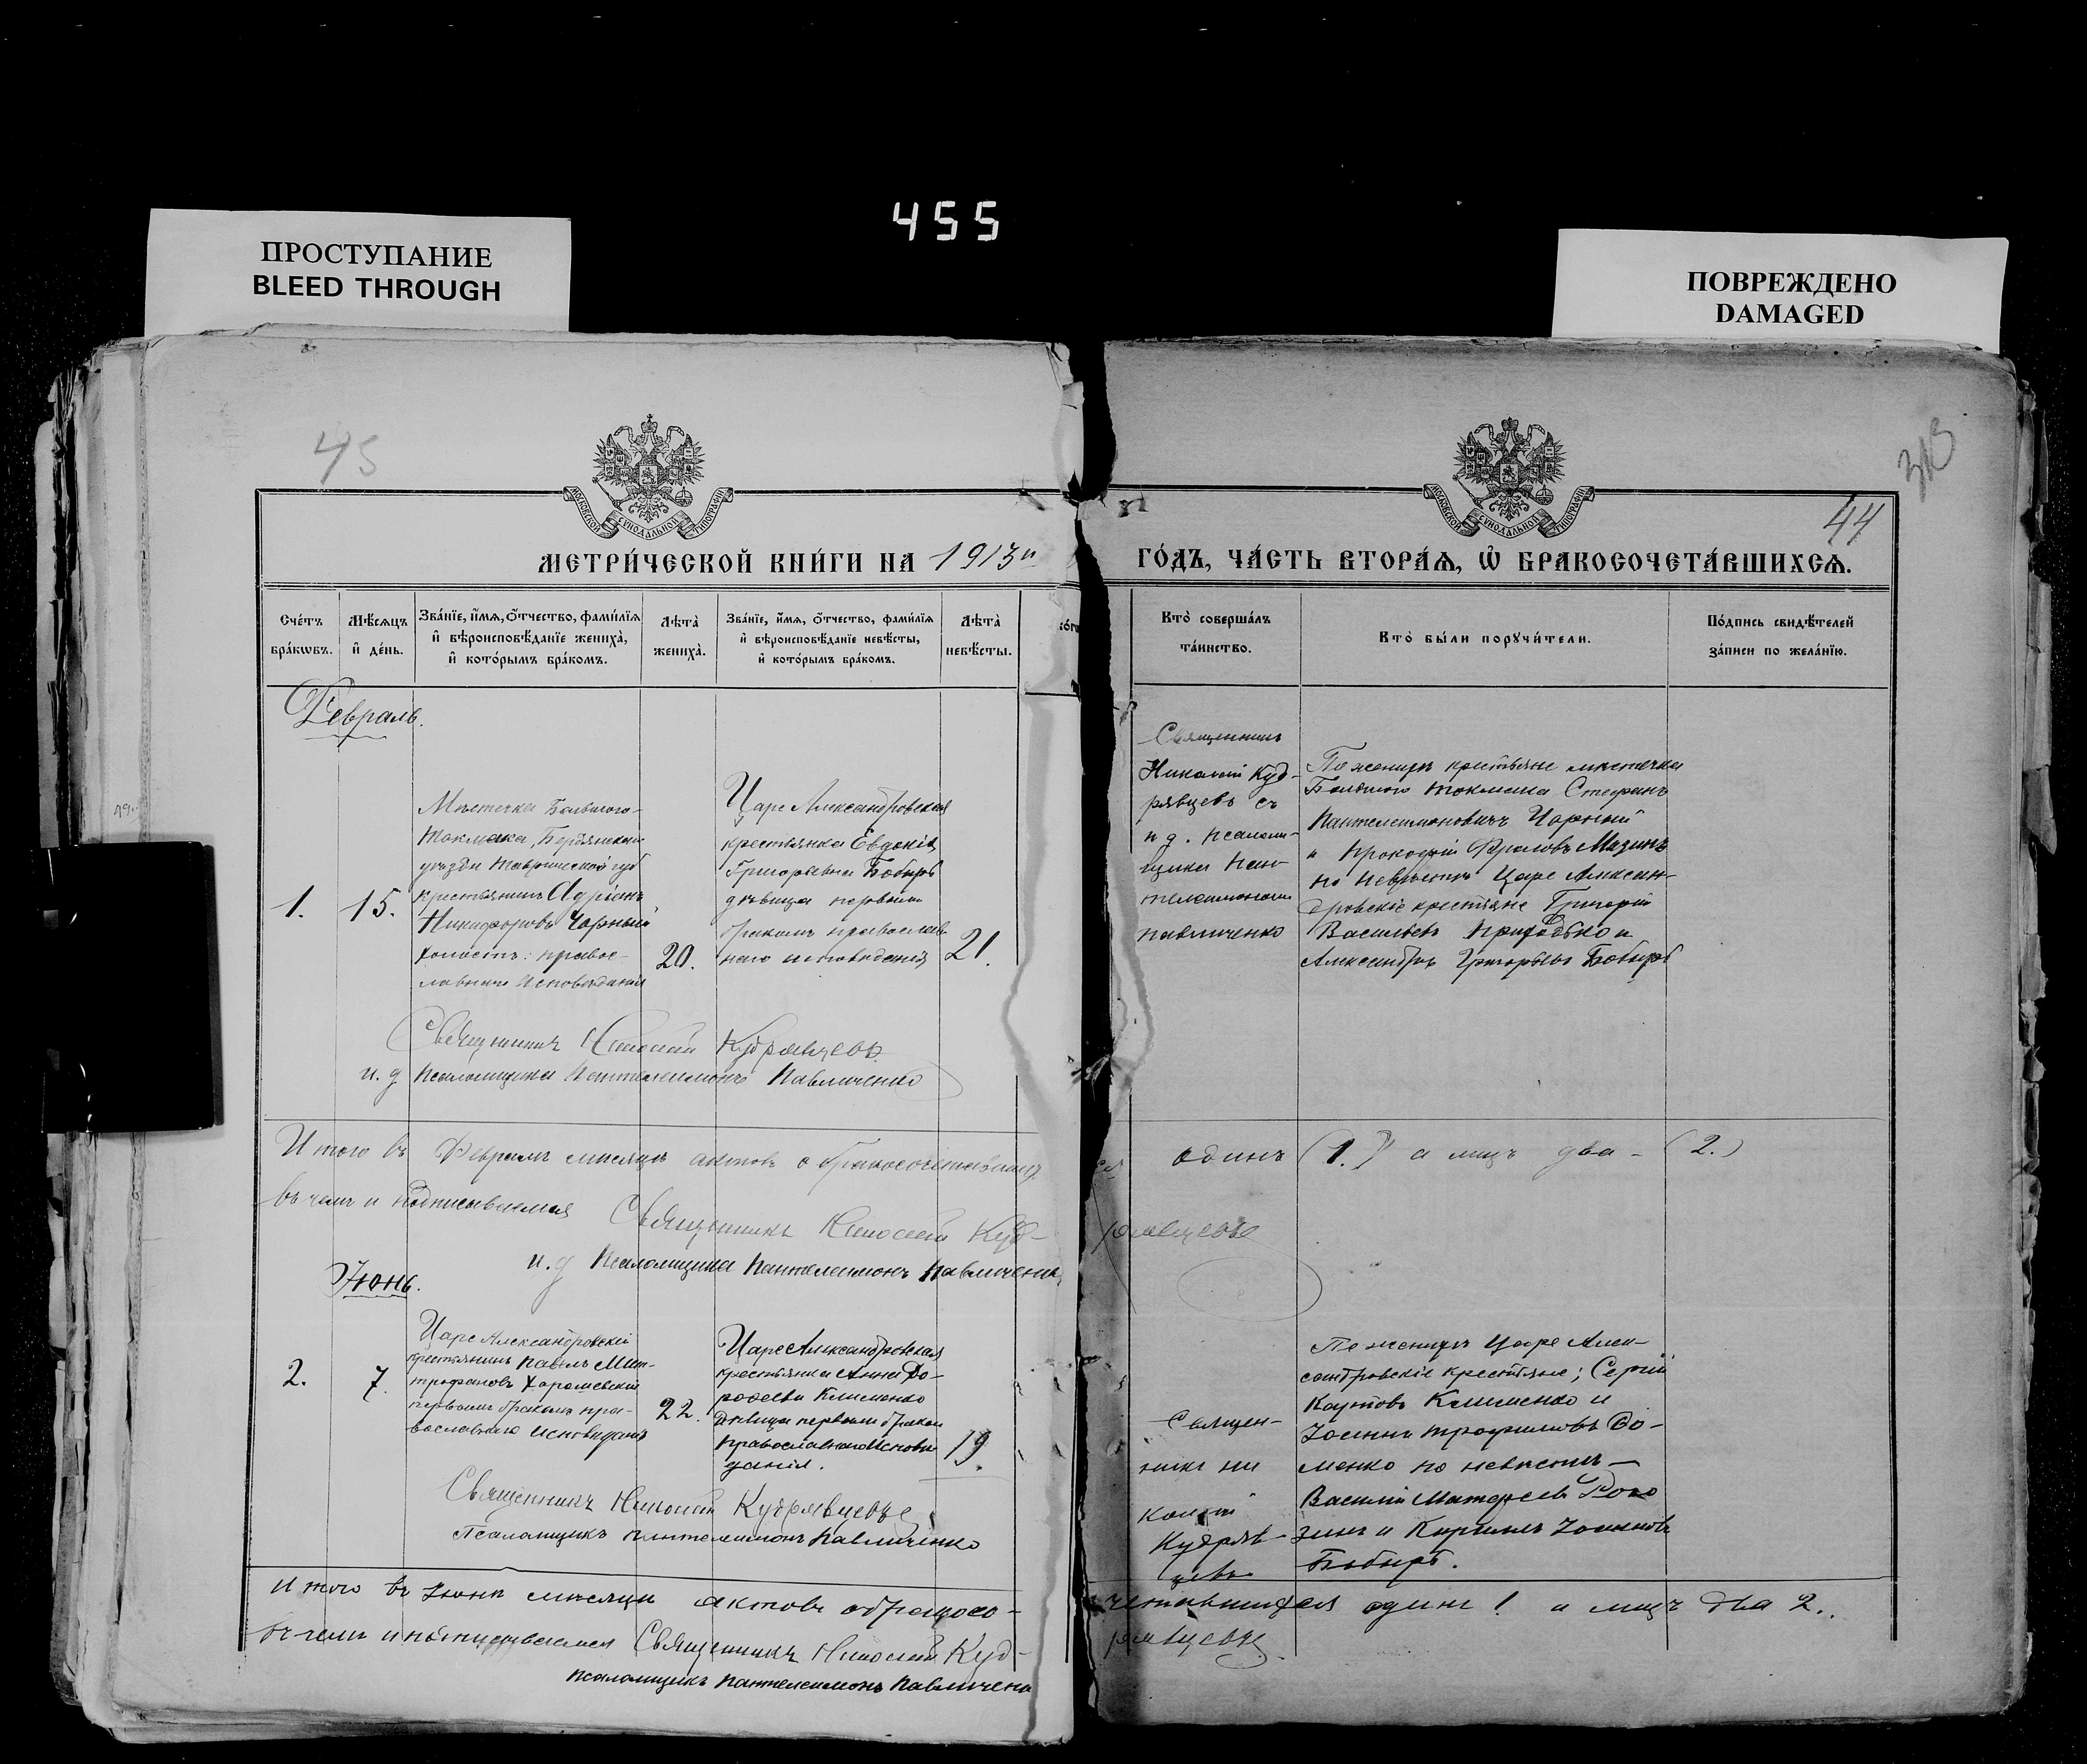 455
ПРОСТУПАНИЕ
BLEED THROUGH
ПОВРЕЖДЕНО
DAMAGED
45
313
44
МОСКОВСКОЙ СѴНОДАЛЬНОЙ ТИПОГРАФІИ
МОСКОВСКОЙ СѴНОДАЛЬНОЙ ТИПОГРАФІИ
МЕТРИ́ЧЕСКОЙ КНИ́ГИ НА 1913й
ГО́ДЪ, ЧА́СТЬ ВТОРА́Ѧ, Ѡ҆ БРАКОСОЧЕТА́ВШИХСѦ.
Сче́тъ
бра́кѡвъ.
Мѣ́сѧцъ
и҆ де́нь.
Зва́нїе, и҆́мѧ, ѻ҆́тчество, фами́лїѧ
и҆ вѣроисповѣ́данїе жениха̀,
и҆ кото́рымъ бра́комъ.
Лѣта̀
жениха̀.
Зва́нїе, и҆́мѧ, ѻ҆́тчество, фами́лїѧ
и҆ вѣроисповѣ́данїе невѣ́сты,
и҆ кото́рымъ бра́комъ.
Лѣта̀
невѣ́сты.
Кто̀ соверша́лъ
та́инство.
Кто̀ бы́ли порꙋчи́тели.
По́дпись свидѣ́телей
за́писи по жела́нїю.
Февраль.
1.
15.
Мѣстечка Большого-
Токмака, Бердянскаго
уѣзда Таврической губ
крестьянинъ Адріанъ
Никифоровъ Чорный
холостъ: правос-
лавнаго исповѣданія
20.
Царе Александровская
крестьянка Евдокія
Григорьевна Бобырь
дѣвица первымъ
бракомъ православ
наго исповѣданія
21.
Священникъ
Николай Куд-
рявцевъ съ
и д. псалом-
щика Пан-
телеимономъ
Павличенко
По женихѣ крестьяне мѣстечка
Большого Токмака Стефанъ
Пантелеимоновичъ Чорный
и Прокофій Фроловъ Мазинъ
по невѣстѣ Царе Алексан-
дровскіе крестьяне Григорій
Васильевъ Приходько и
Александръ Григорьевъ Бобырь
Священникъ Николай Кудрявцевъ
и. д Псаломщика Пантелеимонъ Павличенко
Итого въ Февралѣ мѣсяцѣ актовъ о бракосочетавших
ся один (1.) а лицъ два - (2.)
въ чемъ и подписываемся Священникъ Николай Куд-
рявцевъ
и. д Псаломщика Пантелеимонъ Павличенк
Іюнь.
2.
7.
Царе Александровскій
крестьянинъ Павелъ Мит-
рофановъ Хорошевскій
первымъ бракомъ пра-
вославнаго исповѣданія
22.
Царе Александровская
крестьянка Анна До-
рофеева Клименко
дѣвица первымъ бракомъ
православнаго исповѣ
данія.
19.
Священ-
никъ Ни
колай
Кудряв-
цевъ
По женихѣ Царе Алек-
сандровскіе крестьяне; Сергій
Карповъ Клименко и
Іоаннъ Трофимовъ До-
менко по невѣстѣ —
Василій Матфеевъ Рого
зинъ и Кириллъ Іоанновъ
Бобырь.
Священникъ Николай Кудрявцевъ
Псаломщикъ Пантелеимонъ Павличенко
Итого въ Іюнѣ мѣсяцѣ актовъ о бракосо-
четавшихся один 1 а лицъ два 2..
въ чемъ и подписываемся Священникъ Николай Куд-
рявцевъ
Псаломщикъ Пантелеимонъ Павличенк